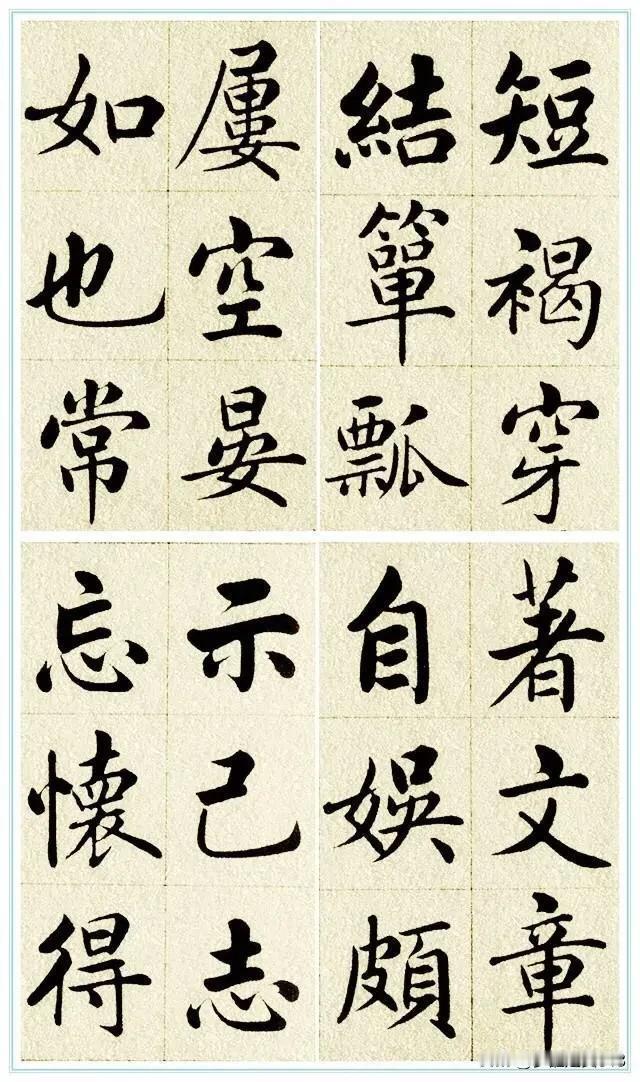 短褐穿
結簞瓢
屢空晏
如也常
著文章
自娛頗
示己志
忘懷得